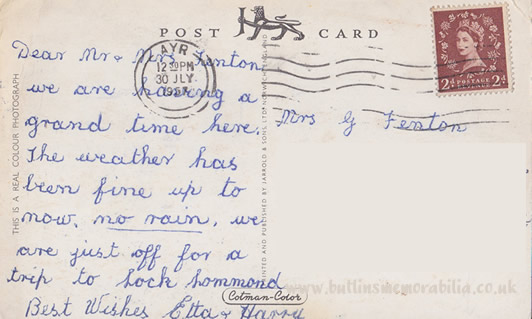 POST CARD
AYR
12 30 PM
30 JLY
1957
Dear Mr & Mrs Fenton,
we are having a
grand time here.
The weather has
been fine up to
now, no rain, we
are just off for a
trip to Loch Lommond
Best Wishes Etta & Harry
Mrs G Fenton
2d POSTAGE 2d
THIS IS A REAL COLOUR PHOTOGRAPH
PRINTED AND PUBLISHED BY JARROLD & SONS LTD NORWICH ENGLAND
Cotman-Color
www.butlinsmemorabilia.co.uk